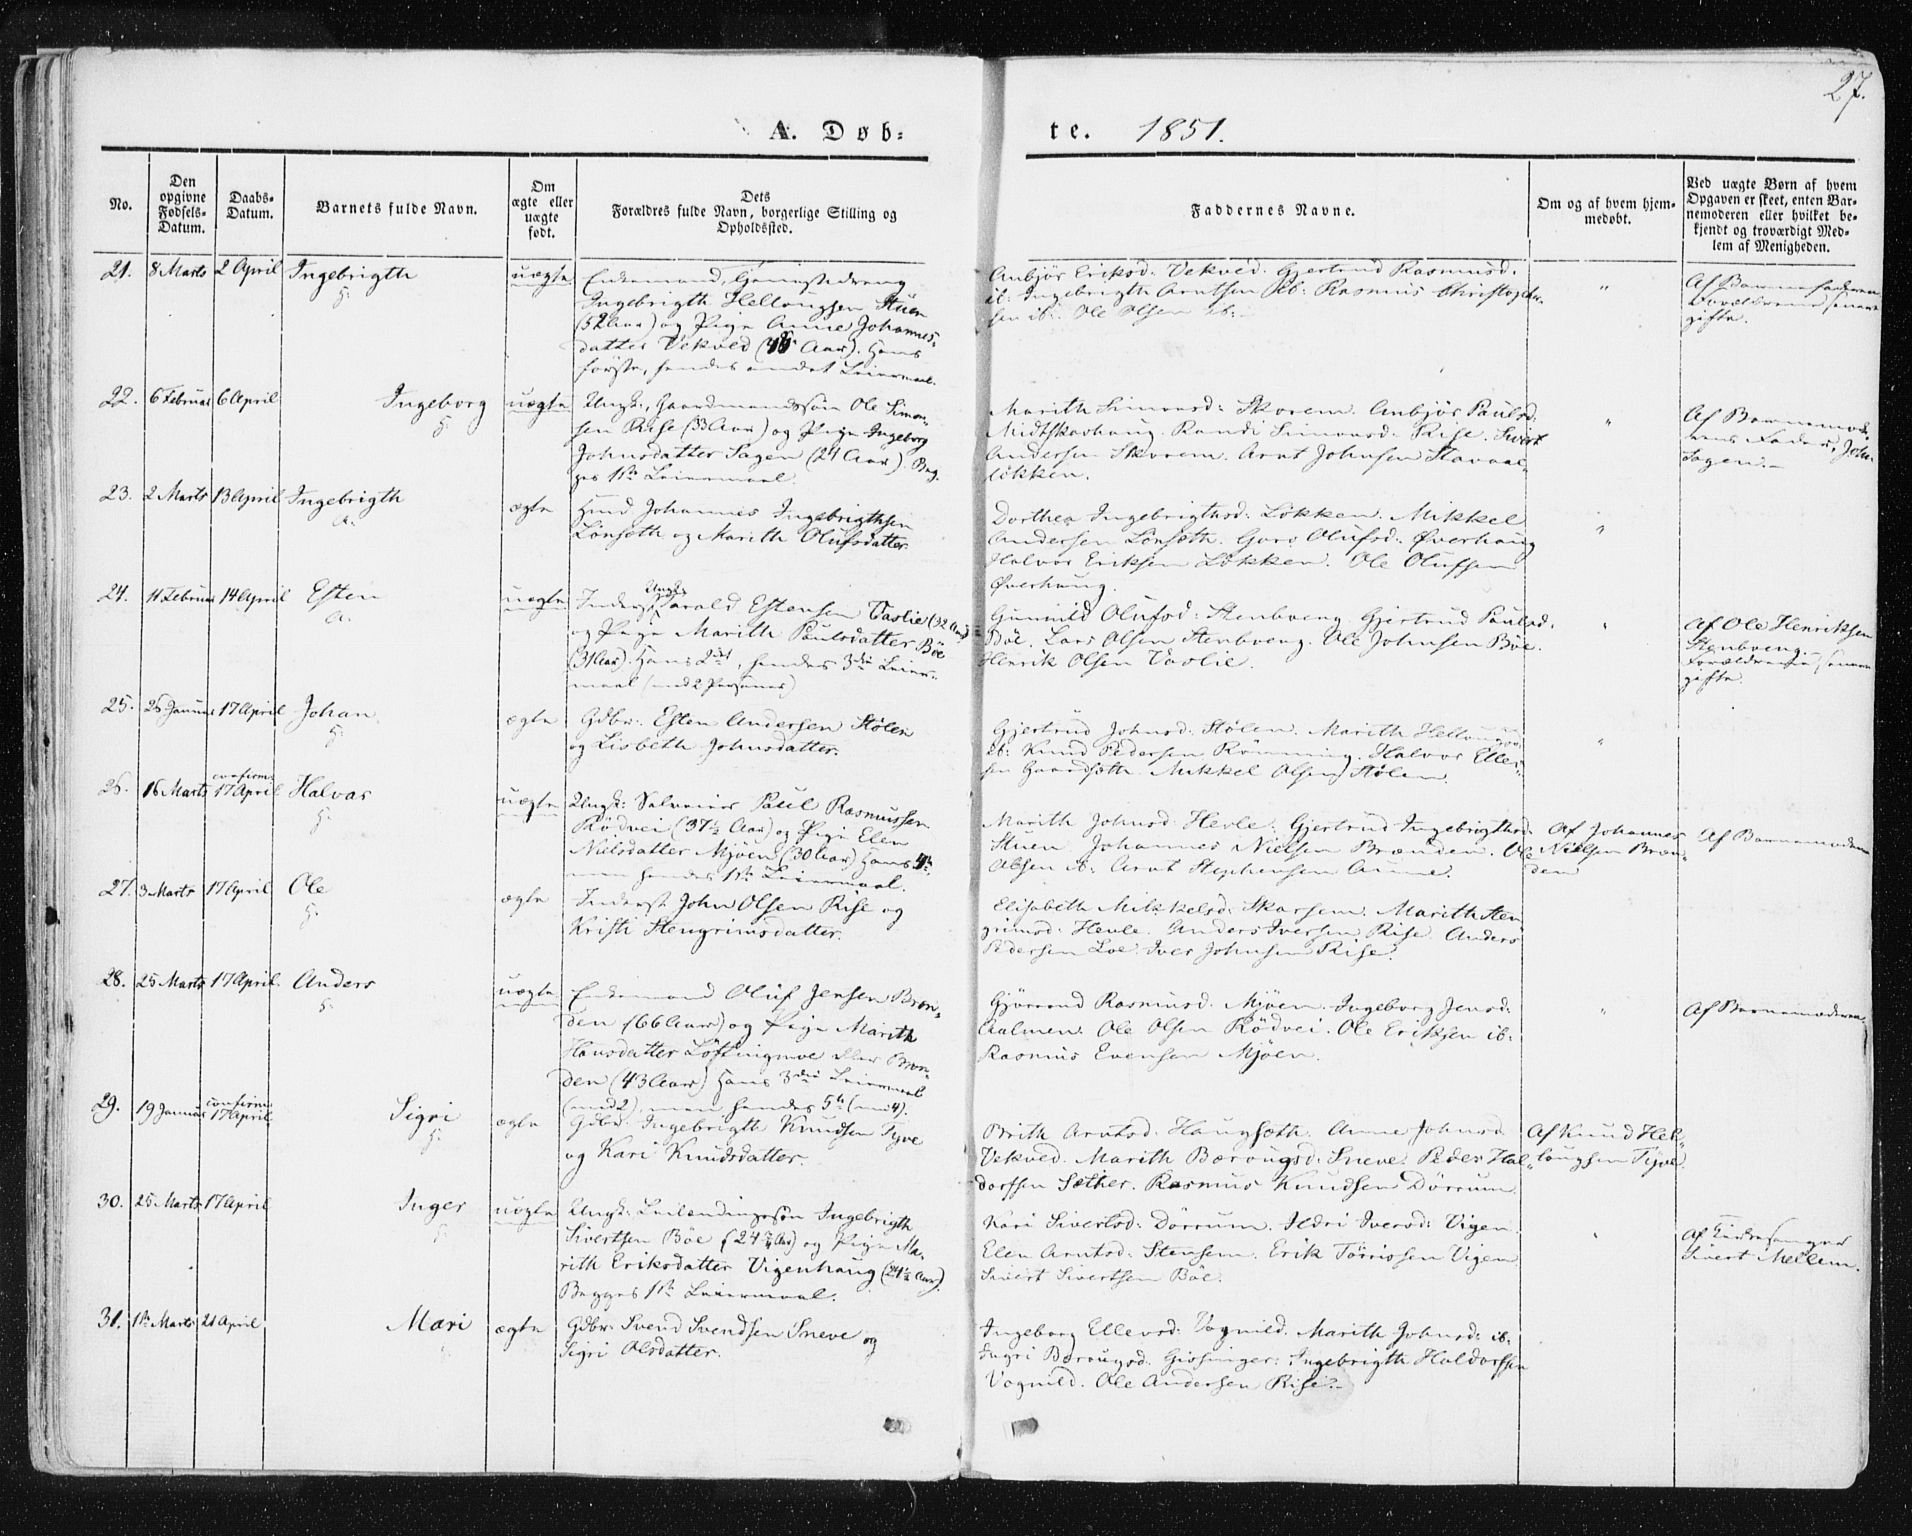 27.
A. Døb-
te. 1851.
No.
Den opgivne Fødsels-Datum.
Daabs-Datum.
Barnets fulde Navn.
Om ægte eller uægte født.
Dets Forældres fulde Navn, borgerlige Stilling og Opholdssted.
Faddernes Navne.
Om og af hvem hjem-medøbt.
Ved uægte Børn af hvem Opgaven er skeet, enten Bar-nemoderen eller hvilket be-kjendt og troværdigt Med-lem af Menigheden.
21. 8 Marts 2 April Ingebrigth uægte
H.
Enkemand,
Ingebrigth Hellougsen Stuen
(52 Aar) og Pige Anne Johannes-
datter Vekved Aar). Hans
første, hendes andet Leiermaal.
Anbjør Eriksd: Vekved. Gjertrud Rasmusd:
ib: Ingebrigth Arntsen ib: Rasmus Christoph-
sen ib: Ole Olsen ib:
"
Af Barnefaderen
Forældrene senere
gifte.
22. 6 Februar 6 April Ingeborg uægte
H.
Ungk:, Gaardmandssøn Ole Simon-
sen Rise (33 Aar) og Pige Ingeborg
Johnsdatter Sagen (24 Aar). Beg-
ges 1ste Leiermaal.
Marith Simonsd: Skorem. Anbjør Paulsd:
Midtskoshaug. Randi Simonsd: Rise. Sivert
Andersen Skorem. Arnt Johnsen Stavaal-
løkken.
"
Af Barnemod-
erens Fader, John
Sagen.
23. 2 Marts 13 April Ingebrigth ægte
A.
Hmd Johannes Ingebrigthsen
Lønseth og Marith Olufsdatter
Dorthea Ingebrigthsd: Løkken. Mikkel
Andersen Lønseth. Goro Olufsd: Øverhaug
Halvor Eriksen Løkken. Ole Olufsen
Øverhaug.
"
24. 11 Februar 14 April Esten uægte
A.
Ungk:
Inderst Harald Estensen Vaslie (32 Aar)
og Pige Marith Paulsdatter Böe
(31 Aar). Hans 2det, hendes 3die Leier-
maal (med 2 Personer)
Gunnild Olufsd: Stenboeng. Gjertrud Paulsd:
Böe. Lars Olsen Stenboeng. Ole Johnsen Böe.
Henrik Olsen Vaslie.
"
Af Ole Henriksen
Stenboeng.
Forældrene senere
gifte.
25. 26 Januar 17 April Johan ægte
H.
Gdbr: Esten Andersen Stølen
og Lisbeth Johnsdatter.
Gjertrud Johnsd: Stølen. Marith
ib: Knud Pedersen Rønning. Halvor Ellef-
sen Gaardseth. Mikkel Olsen Stølen.
"
26. 16 Marts confirm: 17 April Halvar uægte
H.
Ungk: Paul Rasmussen
Rödvei (37½ Aar) og Pige Elen
Nielsdatter Mjøen (30 Aar) Hans 4de
men hendes 1ste Leiermaal.
Marith Johnsd: Hevle. Gjertrud Ingebrigthsd:
Stuen. Johannes Nielsen Brænden. Ole
Olsen ib: Arnt Stephensen Aune.
Af Johannes
Nielsen Bræn-
den
Af Barnemoderen
27. 3 Marts 17 April Ole ægte
H.
Inderst John Olsen Rise og
Kristi Stengrimsdatter.
Elisabeth Mikkelsd: Skarsem. Marith Sten-
grimsd: Hevle. Anders Iversen Rise. Anders
Pedersen Loe. Iver Johnsen Rise.
28. 25 Marts 17 April Anders uægte
H.
Enkemand Oluf Jensen Bræn-
den (66 Aar) og Pige Marith
Hansdatter Löftingmoe eller Bræn-
den (43 Aar) Hans 3die Leiermaal
(med 2), men hendes 5te (med 4).
Gjörrond Rasmusd: Mjöen. Ingeborg Jensd:
Aalmen. Ole Olsen Rödvei. Ole Eriksen ib:
Rasmus Evensen Mjöen.
"
Af Barnemoderen
29. 19 Januar confirm: 17 April Sigri ægte
H.
Gdbr: Ingebrigth Knudsen Tyve
og Kari Knudsdatter.
Brith Arntsd: Haugseth. Anne Johnsd:
Vekved. Marith Bærougsd: Sneve. Peder Hal-
dorssen Sæther. Rasmus Knudsen Dörrum.
Af Knud Hel-
lougsen Tyve
30. 25 Marts 17 April Inger uægte
H.
Ungk: Leilændingssøn Ingebrigth
Sivertsen Böe (24 Aar) og Pige Ma-
rith Eriksdatter Vigenhaug (24½ Aar).
Begges 1ste Leiermaal.
Kari Sivertsd: Dörrum. Ildri Iversd: Vigen.
Elen Arntsd: Stensem. Erik Törrissen Vigen.
Sivert Sivertsen Böe.
"
Af Kirkesanger
Sivert Mellem.
31. 1ste Marts 21 April Mari ægte
Gdbr: Svend Svendsen Sneve og
Sigri Olsdatter.
Ingeborg Ellevsd: Vognild. Marith Johnsd: ib:
Ingri Bærougsd: Gissinger: Ingebrigth Haldorssen
Vognild. Ole Andersen Rise.